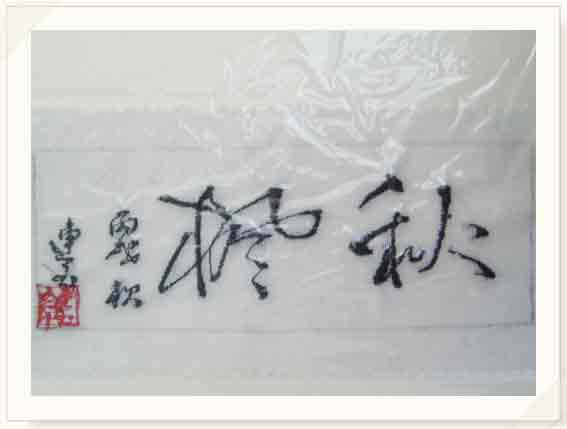 秋枫
丙戌秋